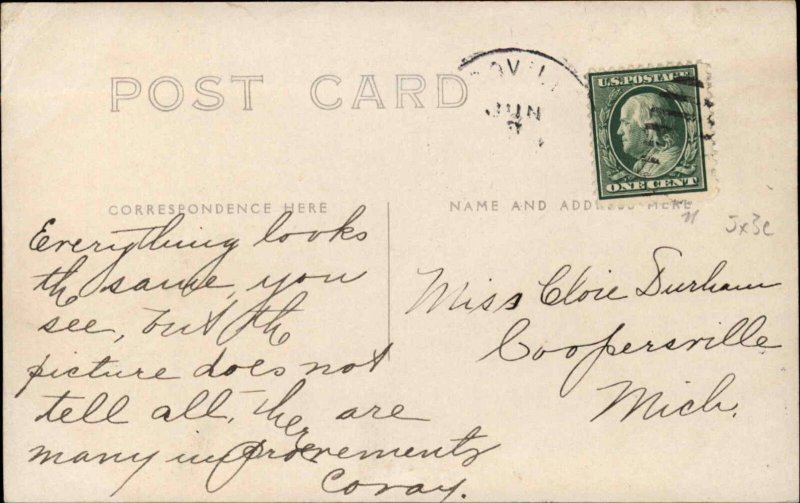 POST CARD
OVIL
JUN
U.S. POSTAGE
ONE CENT
CORRESPONDENCE HERE
NAME AND ADDRESS HERE
Everything looks
the same, you
see, but the
picture does not
tell all. There are
many improvements
Coray.
Miss Cloie Durham
Coopersville
Mich.